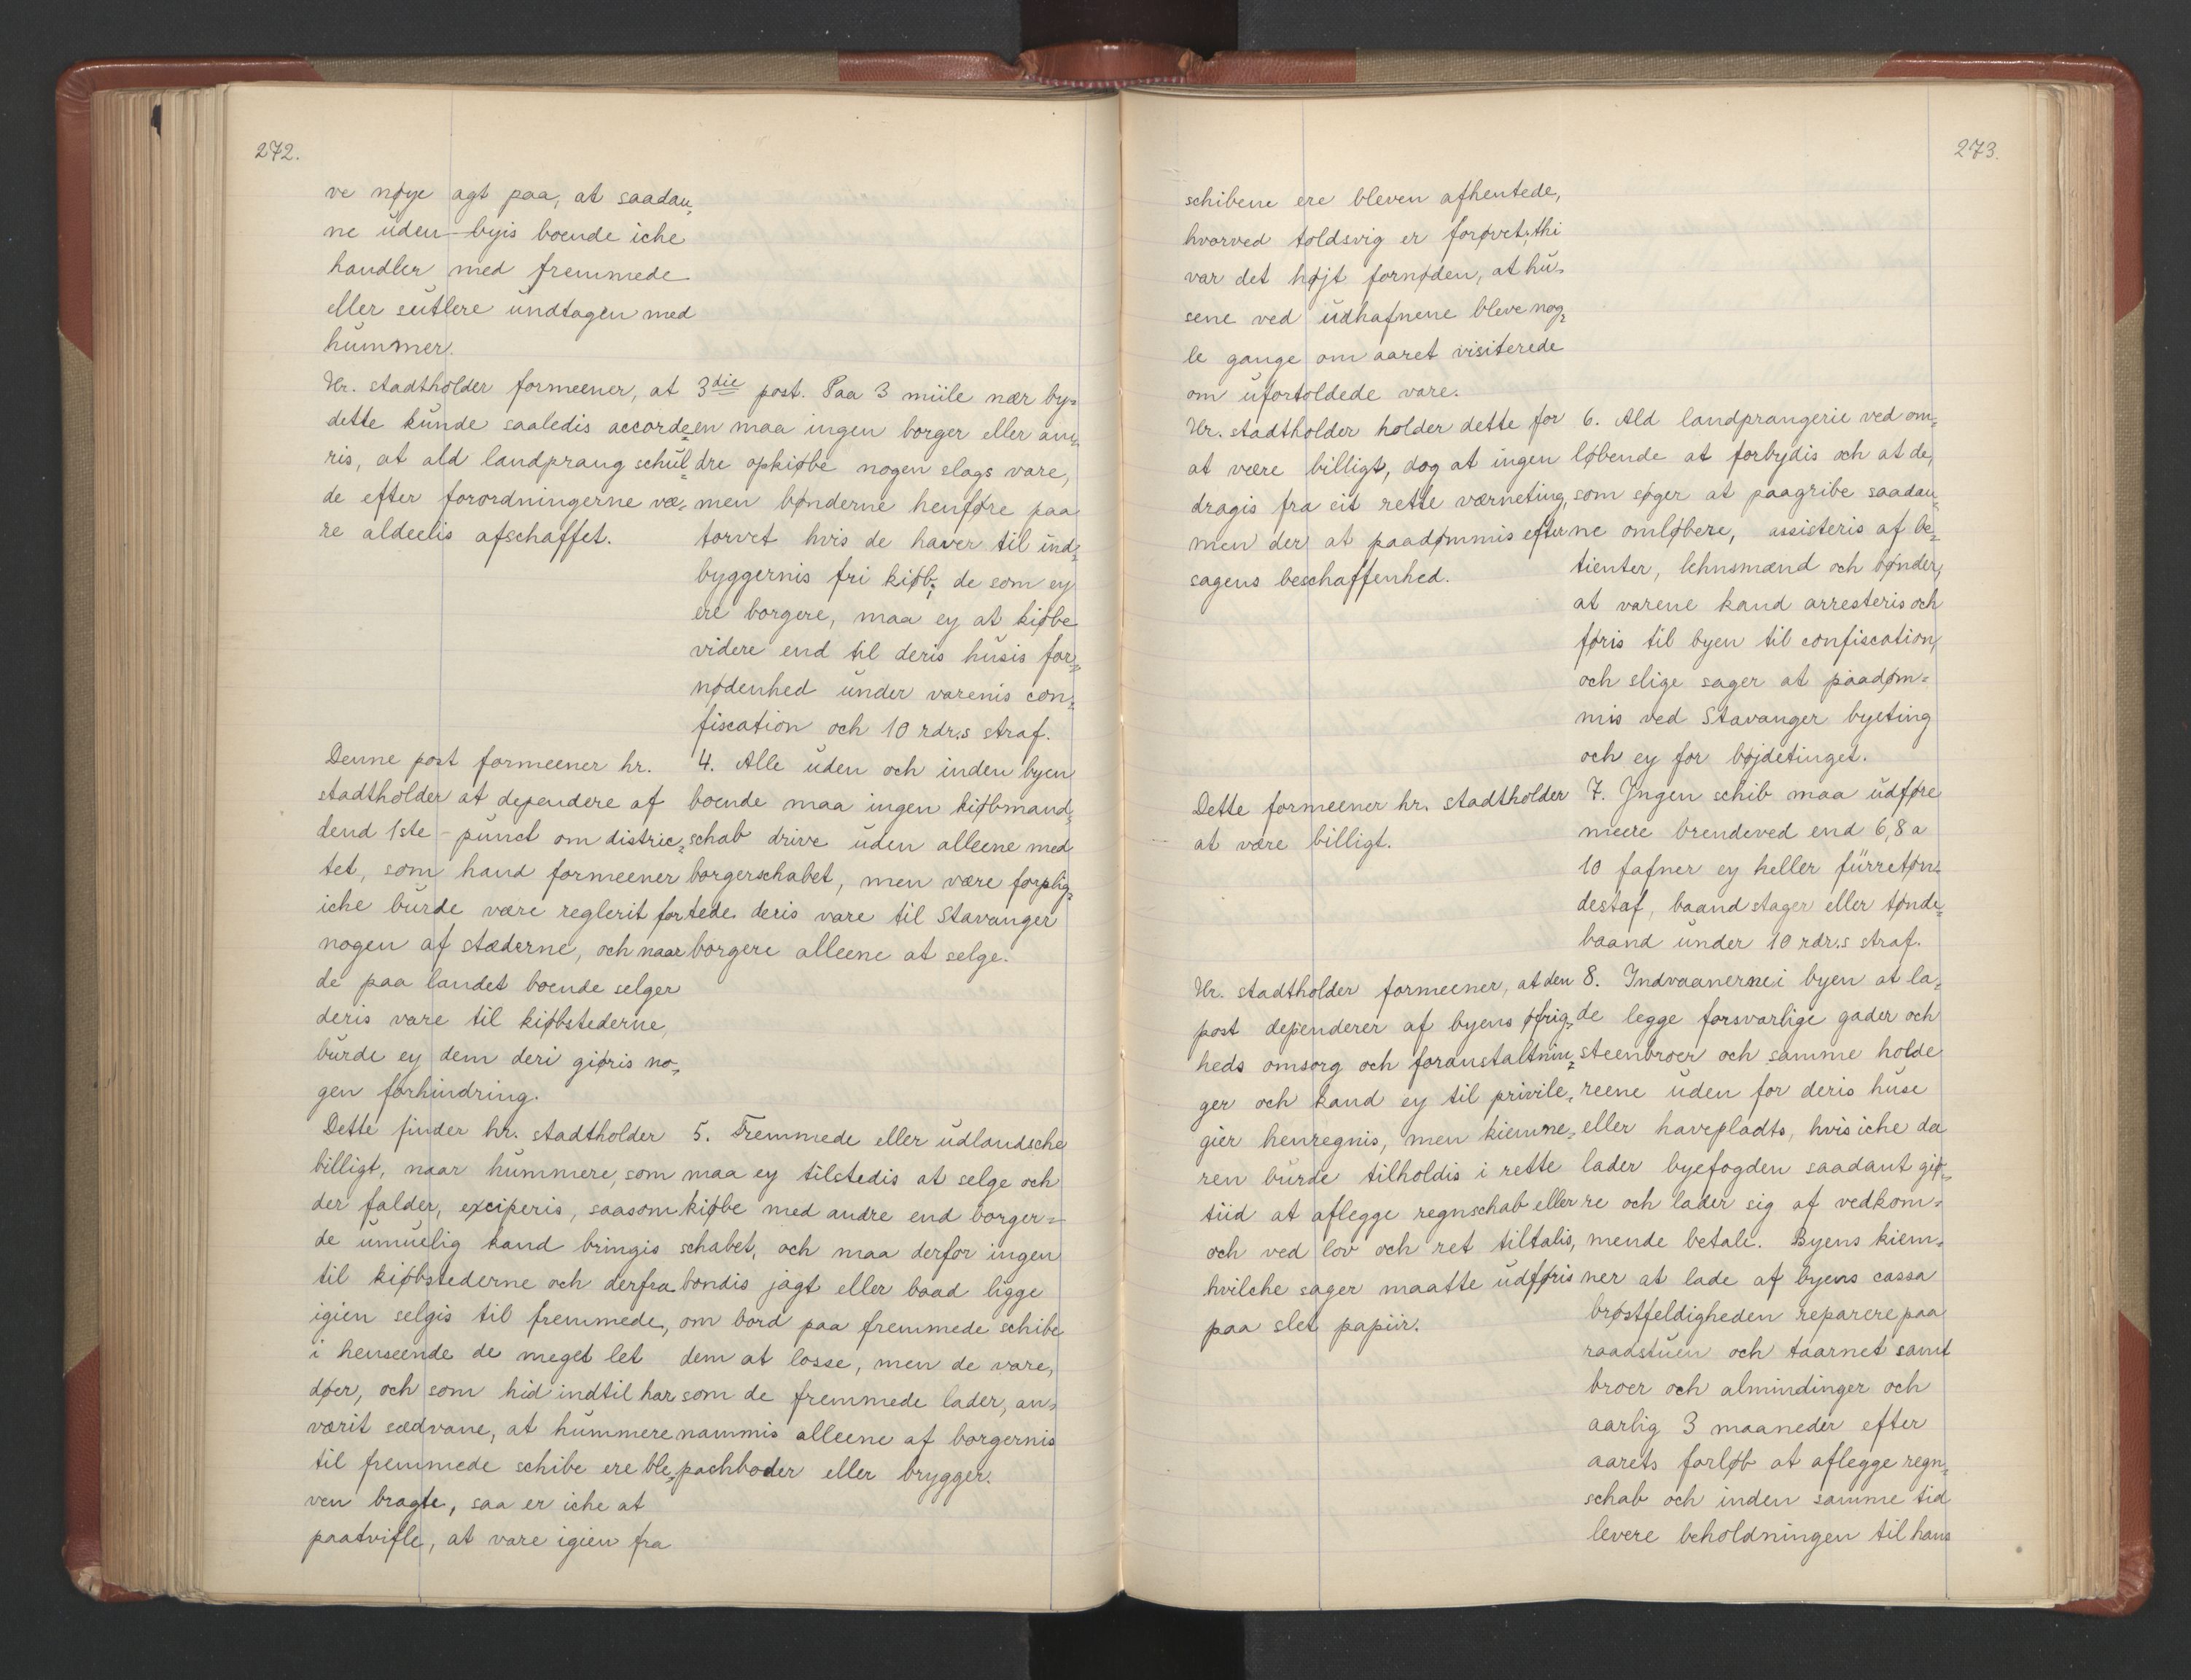 272.
ve nøye agt paa, at saadan„
ne uden-byis boende iche
handler med fremmede
eller sutlere undtagen med
hummer.
Hr. stadtholder formeener, at
dette kunde saaledis accorde„
ris, at ald landprang schul„
de efter forordningerne væ„
re aldeelis afschaffet.
3die post. Paa 3 miile nær by„
en maa ingen borger eller an„
dre opkiøbe nogen slags vare,
men bønderne henføre paa
torvet hvis de haver til ind„
byggernis fri kiøb; de som ey
ere borgere, maa ey at kiøbe
videre end til deris husis for„
nødenhed under varenis con„
fiscation och 10 rdr.s straf.
Denne post formeener hr.
stadtholder at dependere af
dend 1ste-punct om distric„
tet, som hand formeener
iche burde være reglerit for
nogen af stæderne, och naar
de paa landet boende selger
deris vare til kiøbstederne,
burde ey dem deri giøris no„
gen forhindring.
4. Alle uden och inden byen
boende maa ingen kiøbmand„
schab drive uden alleene med
borgerschabet, men være forplig„
tede deris vare til Stavanger
borgere alleene at selge.
Dette finder hr. stadtholder
billigt, naar hummere, som
der falder, exciperis, saasom
de umuelig kand bringis
til kiøbstederne och derfra
igien selgis til fremmede,
i henseende de meget let
døer, och som hid indtil har
værit sædvane, at hummere
til fremmede schibe ere ble„
ven bragte, saa er iche at
paatvifle, at vare igien fra
5. Fremmede eller udlandsche
maa ey tilstedis at selge och
kiøbe med andre end borger„
schabet, och maa derfor ingen
bondis jagt eller baad ligge
om bord paa fremmede schibe
dem at losse, men de vare,
som de fremmede lader, an„
nammis alleene af borgernis
pachboder eller brygger.
273.
schibene ere bleven afhentede,
hvorved toldsvig er forøvet; thi
var det højt fornøden, at hu„
sene ved udhafnene bleve nog„
le gange om aaret visiterede
om ufortoldede vare.
Hr. stadtholder holder dette for
at være billigt, dog at ingen
dragis fra sit rette værneting,
men der at paadømmis efter
sagens beschaffenhed.
6. Ald landprangerie ved om„
løbende at forbydis och at de,
som søger at paagribe saadan„
ne omløbere, assisteris af be„
tienter, lehnsmænd och bønder,
at varene kand arresteris och
føris til byen til confiscation,
och slige sager at paadøm„
mis ved Stavanger byeting
och ey for bøjdetinget.
Dette formeener hr. stadtholder
at være billigt.
7. Ingen schib maa udføre
meere brendeved end 6, 8 a
10 fafner ey heller fürretøn„
destaf, baandstager eller tønde„
baand under 10 rdr.s straf.
Hr. stadtholder formeener, at den
post dependerer af byens øfrig„
heds omsorg och foranstaltnin„
ger och kand ey til privile„
gier henregnis, men kiemne„
ren burde tilholdis i rette
tiid at aflegge regnschab eller
och ved lov och ret tiltalis,
hvilche sager maatte udføris
paa slet papiir.
8. Indvaanerne i byen at la„
de legge forsvarlige gader och
steenbroer och samme holde
reene uden for deris huse
eller havepladts, hvis iche da
lader byefogden saadant giø„
re och lader sig af vedkom„
mende betale. Byens kiem„
ner at lade af byens cassa
brøstfeldigheden reparere paa
raadstuen och taarnet samt
broer och almindinger och
aarlig 3 maaneder efter
aarets forløb at aflegge regn„
schab och inden samme tid
levere beholdningen til hans